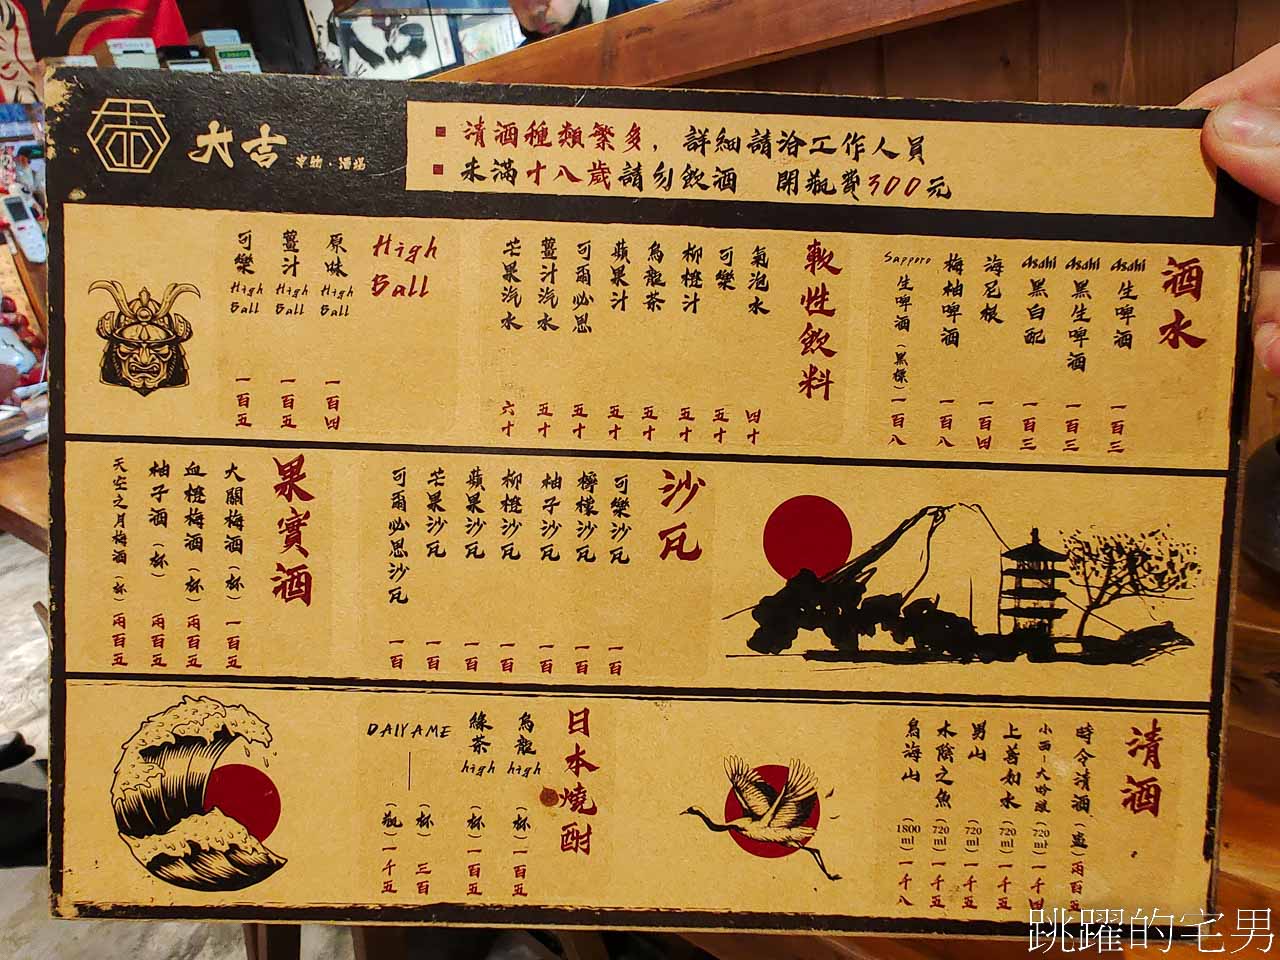 大吉
串物·酒場
清酒種類繁多，詳細請洽工作人員
未滿十八歲請勿飲酒 開瓶費300元
酒水
Asahi 生啤酒 一百三
Asahi 黑生啤酒 一百三
Asahi 黑白配 一百三
海尼根 一百四
梅柚啤酒 一百八
Sapporo 生啤酒（黑標）一百八
軟性飲料
氣泡水 四十
可樂 五十
柳橙汁 五十
烏龍茶 五十
蘋果汁 五十
可爾必思 五十
薑汁汽水 五十
芒果汽水 六十
High Ball
原味 High Ball 一百四
薑汁 High Ball 一百五
可樂 High Ball 一百五
沙瓦
可樂沙瓦 一百
檸檬沙瓦 一百
柚子沙瓦 一百
柳橙沙瓦 一百
蘋果沙瓦 一百
芒果沙瓦 一百
可爾必思沙瓦 一百
果實酒
大關梅酒（杯）一百五
血橙梅酒（杯）兩百五
柚子酒（杯）兩百五
天空之月梅酒（杯）兩百五
清酒
時令清酒（盅）兩百五
小西-大吟釀（720ml）一千四
上善如水（720ml）一千五
男山（720ml）一千五
水陰之魚（720ml）一千五
鳥海山（1800ml）一千八
日本燒酎
烏龍high（杯）一百五
綠茶high（杯）一百五
DAIYAME
（杯）三百
（瓶）一千五
跳躍的宅男